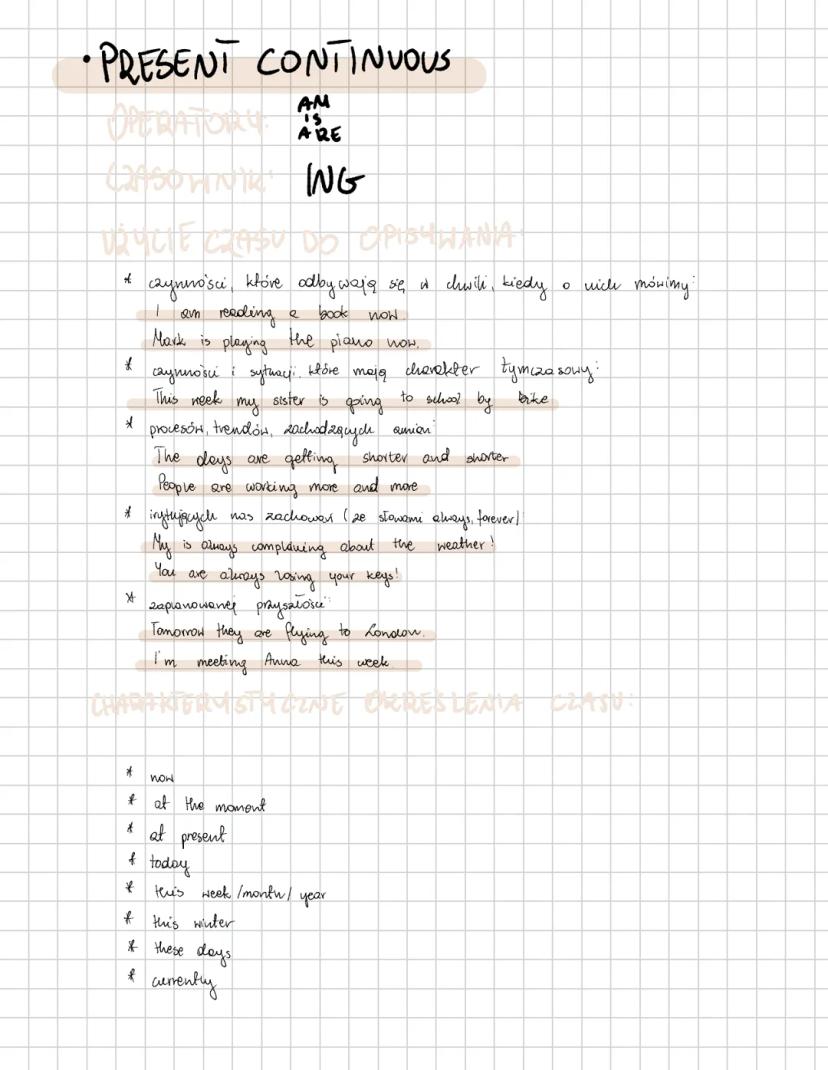 • PRESENT CONTINUOUS
OPERATORY: AM
IS
ARE
CZASOWNIK: ING
UŻYCIE CZASU DO OPISYWANIA:
* czynności, które odbywają się w chwili, kiedy o nich mówimy:
I am reading a book now
Mark is playing the piano now.
* czynności i sytuacji, które mają charakter tymczasowy:
This week my sister is going to school by bike
* procesów, trendów, zachodzących zmian:
The days are getting shorter and shorter
People are working more and more
* irytujących nas zachowań (ze słowami always, forever)
My is always complaining about the weather!
You are always losing your keys!
* zaplanowanej przyszłości:
Tomorrow they are flying to London.
I'm meeting Anna this week.
CHARAKTERYSTYCZNE OKREŚLENIA CZASU:
* now
* at the moment
* at present
* today
* this week/month/year
* this winter
* these days
* currently